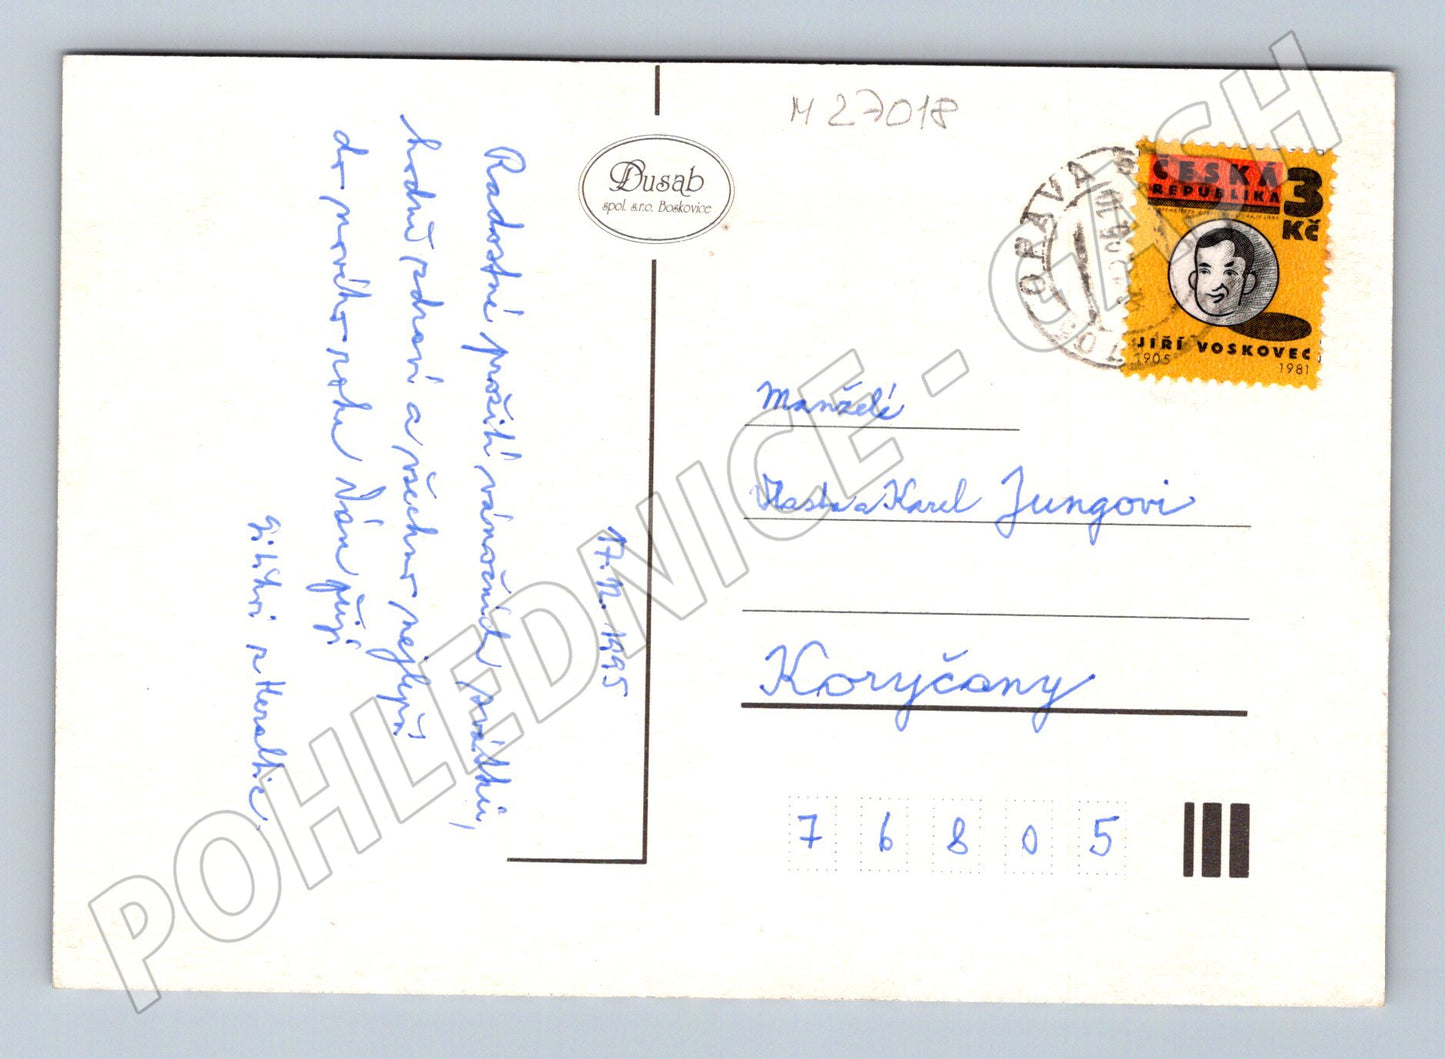 M 27018
Dusab
spol. s.r.o. Boskovice
ČESKÁ
REPUBLIKA
3
Kč
JIŘÍ VOSKOVEC
1905
1981
OPAVA
17. 12. 1995
Radostné prožití vánočních svátků,
hodně zdraví a všechno nejlepší
do nového roku Vám přejí
z
Manželé
Vlasta a Karel Jungovi
Koryčany
7 6 8 0 5
POHLEDNICE - GASH